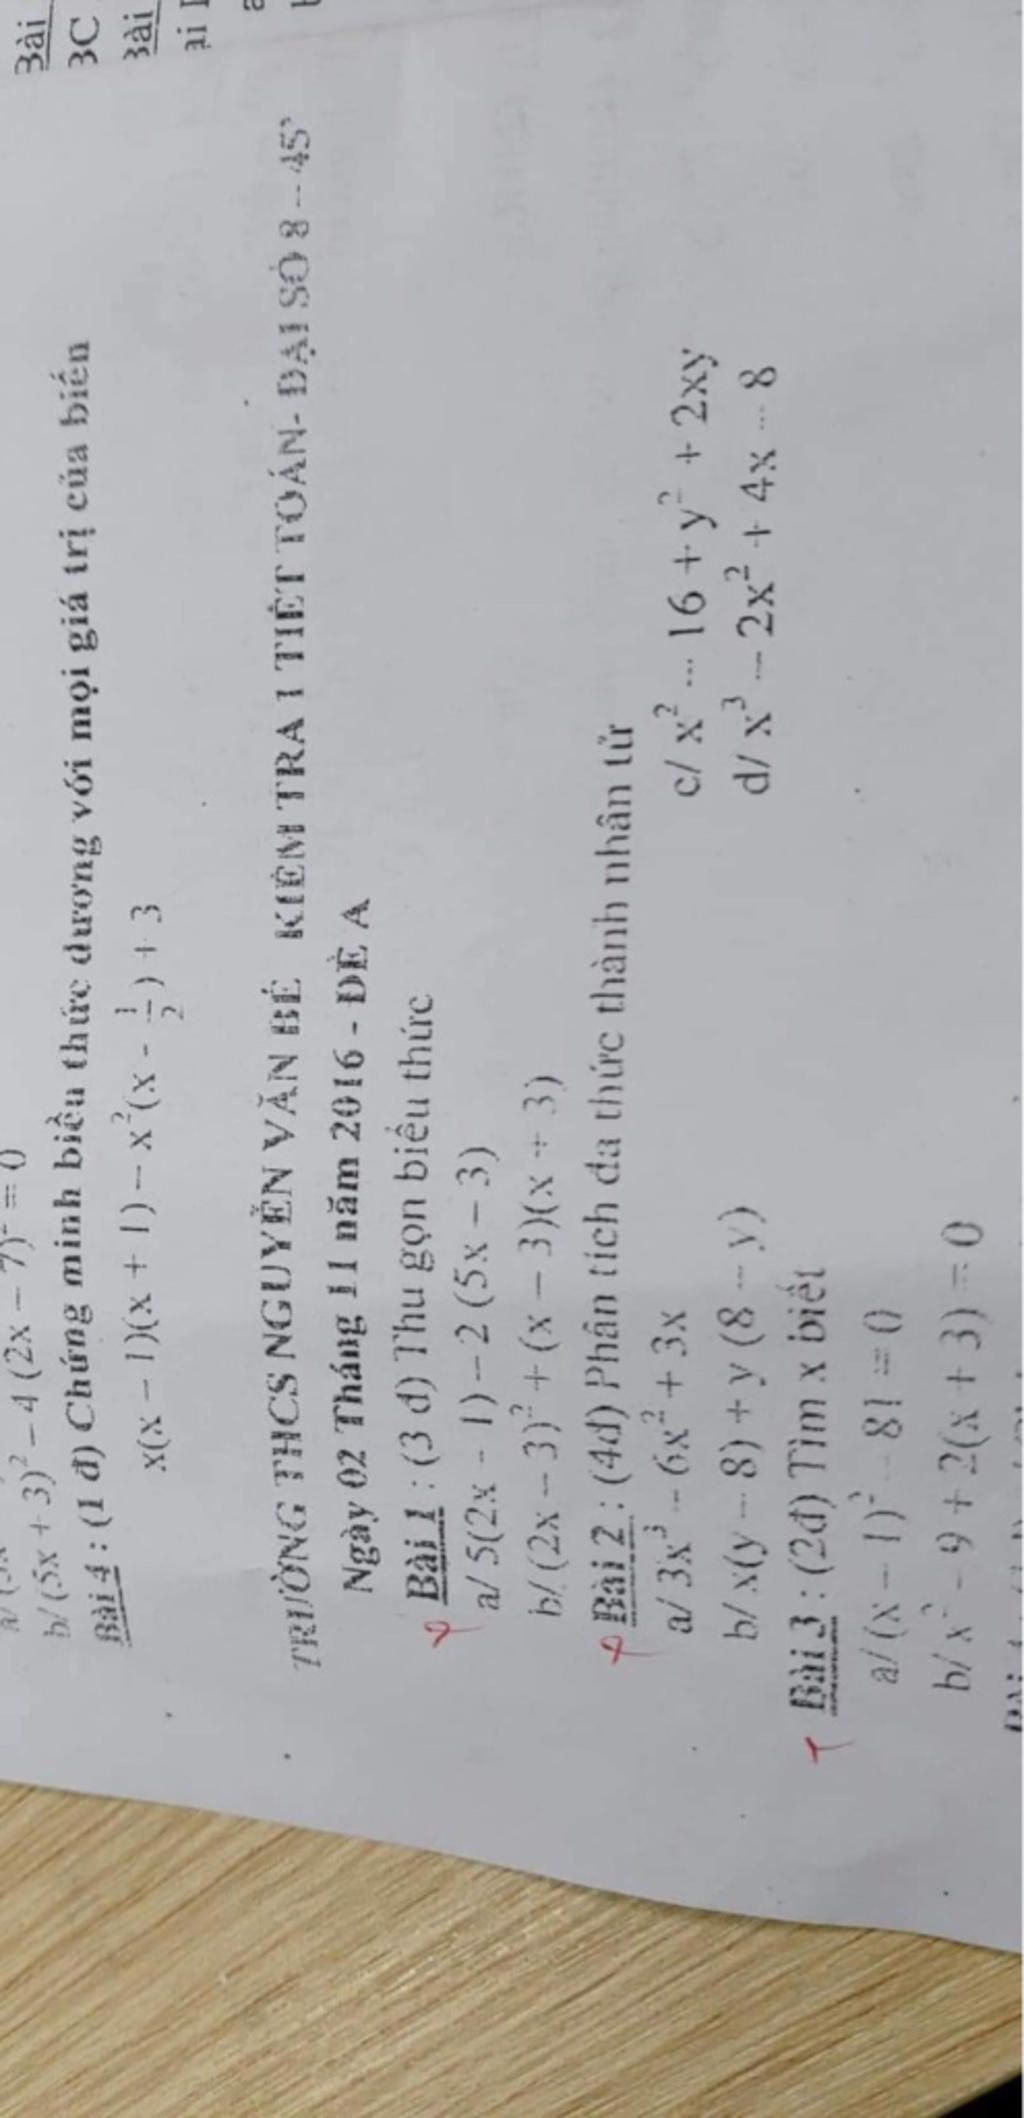 b/ (5x + 3)² – 4 (2x – 7)² = 0
Bài 4 : (1 đ) Chứng minh biểu thức dương với mọi giá trị của biến
x(x – 1)(x + 1) – x²(x - 1/2) + 3
TRƯỜNG THCS NGUYỄN VĂN BÉ KIỂM TRA 1 TIẾT TOÁN- ĐẠI SỐ 8 – 45'
Ngày 02 Tháng 11 năm 2016 - ĐỀ A
Bài 1 : (3 đ) Thu gọn biểu thức
a/ 5(2x - 1) – 2 (5x – 3)
b/ (2x – 3)² + (x – 3)(x + 3)
Bài 2 : (4đ) Phân tích đa thức thành nhân tử
a/ 3x³ – 6x² + 3x c/ x² – 16 + y² + 2xy
b/ x(y – 8) + y (8 – y) d/ x³ – 2x² + 4x – 8
Bài 3 : (2đ) Tìm x biết
a/ (x – 1)² – 81 = 0
b/ x² – 9 + 2(x + 3) = 0
Bài
3C